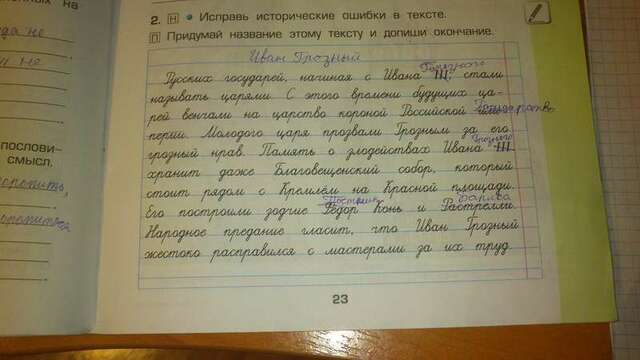 2. Н • Исправь исторические ошибки в тексте.
П Придумай название этому тексту и допиши окончание.
Иван Грозный
Грозного
Русских государей, начиная с Ивана III, стали
называть царями. С этого времени будущих ца-
рей венчали на царство короной Российской
перии. Молодого царя прозвали Грозным за его
Грозного
грозный нрав. Память о злодействах Ивана III
хранит даже Благовещенский собор, который
стоит рядом с Кремлём на Красной площади.
Постник Барма
Его построили зодчие Фёдор Конь и Растрелли
Народное предание гласит, что Иван Грозный
жестоко расправился с мастерами за их труд
23
на
да не
не
послови-
смысл.
оропить,
оропить